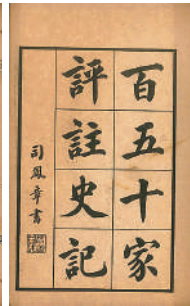 百五十家
評註史記
司鳳章書